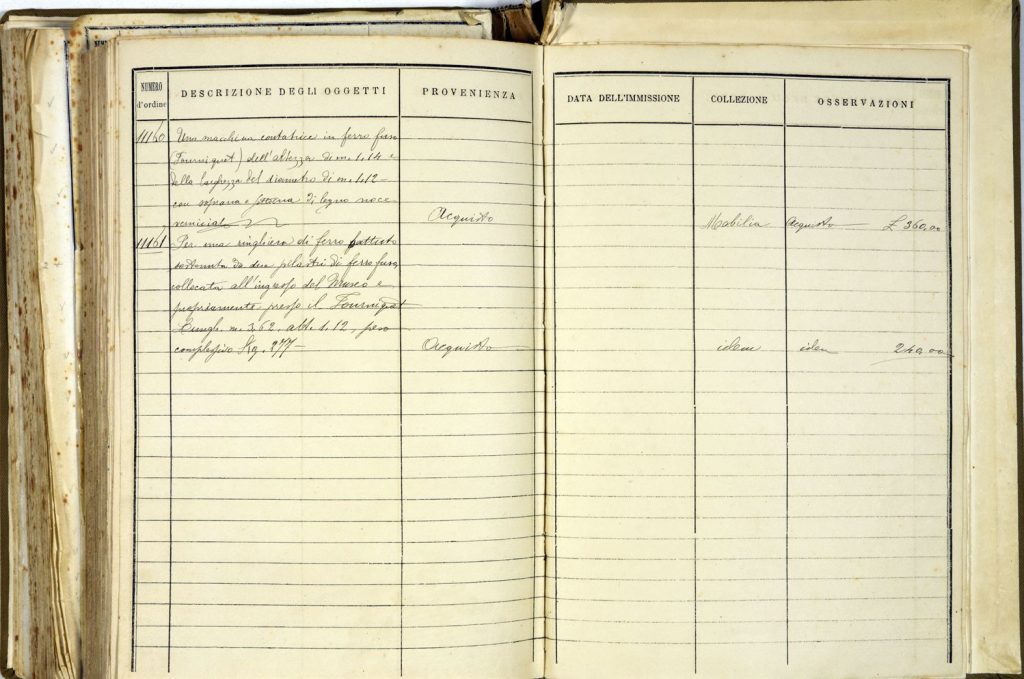 NUMERO d'ordine DESCRIZIONE DEGLI OGGETTI PROVENIENZA DATA DELL'IMMISSIONE COLLEZIONE OSSERVAZIONI
11160 Una macchina contatrice in ferro fuso
(Tourniquet) dell'altezza di m. 1,14 e
della larghezza del diametro di m. 1,12 —
con soprana e sottana di legno noce
verniciato Acquisto Mobilia Acquisto — £ 360,00
11161 Per una ringhiera di ferro battuto
sostenuta da due pilastri di ferro fuso,
collocata all'ingresso del Museo e
propriamente presso il Tourniquet
Lungh. m. 3,62, alt. 1,12, peso
complessivo Kg. 277 — Acquisto — idem idem 240,00